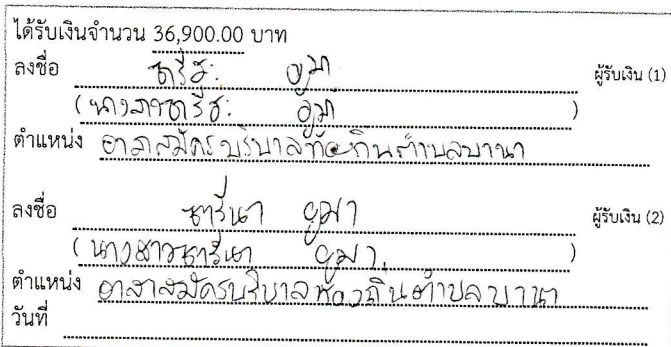 ได้รับเงินจำนวน 36,900.00 บาท
ลงชื่อ ผู้รับเงิน (1)
(นางสาว )
ตำแหน่ง อาสาสมัครบริบาลท้องถิ่นตำบลบานา
ลงชื่อ ซารีนา ผู้รับเงิน (2)
(นางสาวซารีนา )
ตำแหน่ง อาสาสมัครบริบาลท้องถิ่นตำบลบานา
วันที่